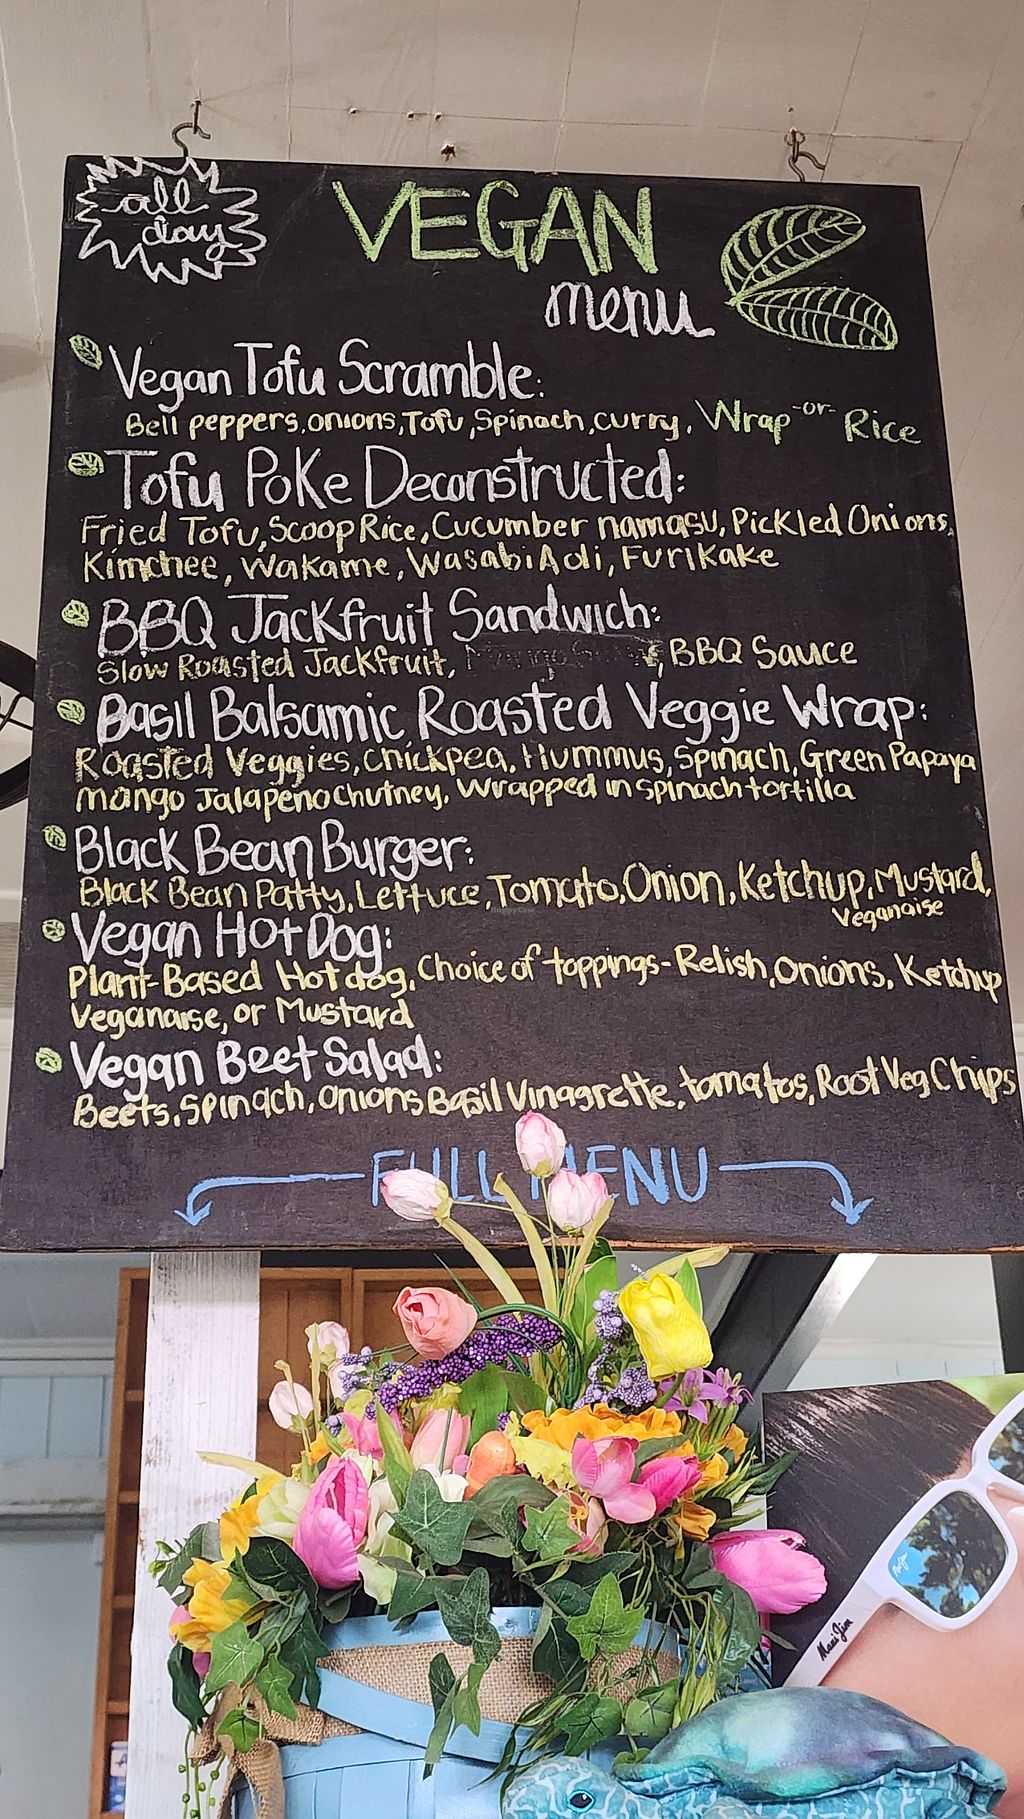 all
day
VEGAN
menu
Vegan Tofu Scramble:
Bell peppers, onions, Tofu, Spinach, curry, Wrap -or- Rice
Tofu Poke Deconstructed:
Fried Tofu, Scoop Rice, Cucumber namasu, Pickled Onions,
Kimchee, Wakame, Wasabi Aoli, Furikake
BBQ Jackfruit Sandwich:
Slow Roasted Jackfruit, BBQ Sauce
Basil Balsamic Roasted Veggie Wrap:
Roasted Veggies, Chickpea, Hummus, Spinach, Green Papaya
Mango Jalapeno Chutney, Wrapped in spinach tortilla
Black Bean Burger:
Black Bean Patty, Lettuce, Tomato, Onion, Ketchup, Mustard,
Veganaise
Vegan Hot Dog:
Plant-Based Hotdog, Choice of toppings - Relish, Onions, Ketchup
Veganaise, or Mustard
Vegan Beet Salad:
Beets, Spinach, Onions Basil Vinagrette, tomatos, Root Veg Chips
FULL MENU
Maui Jim